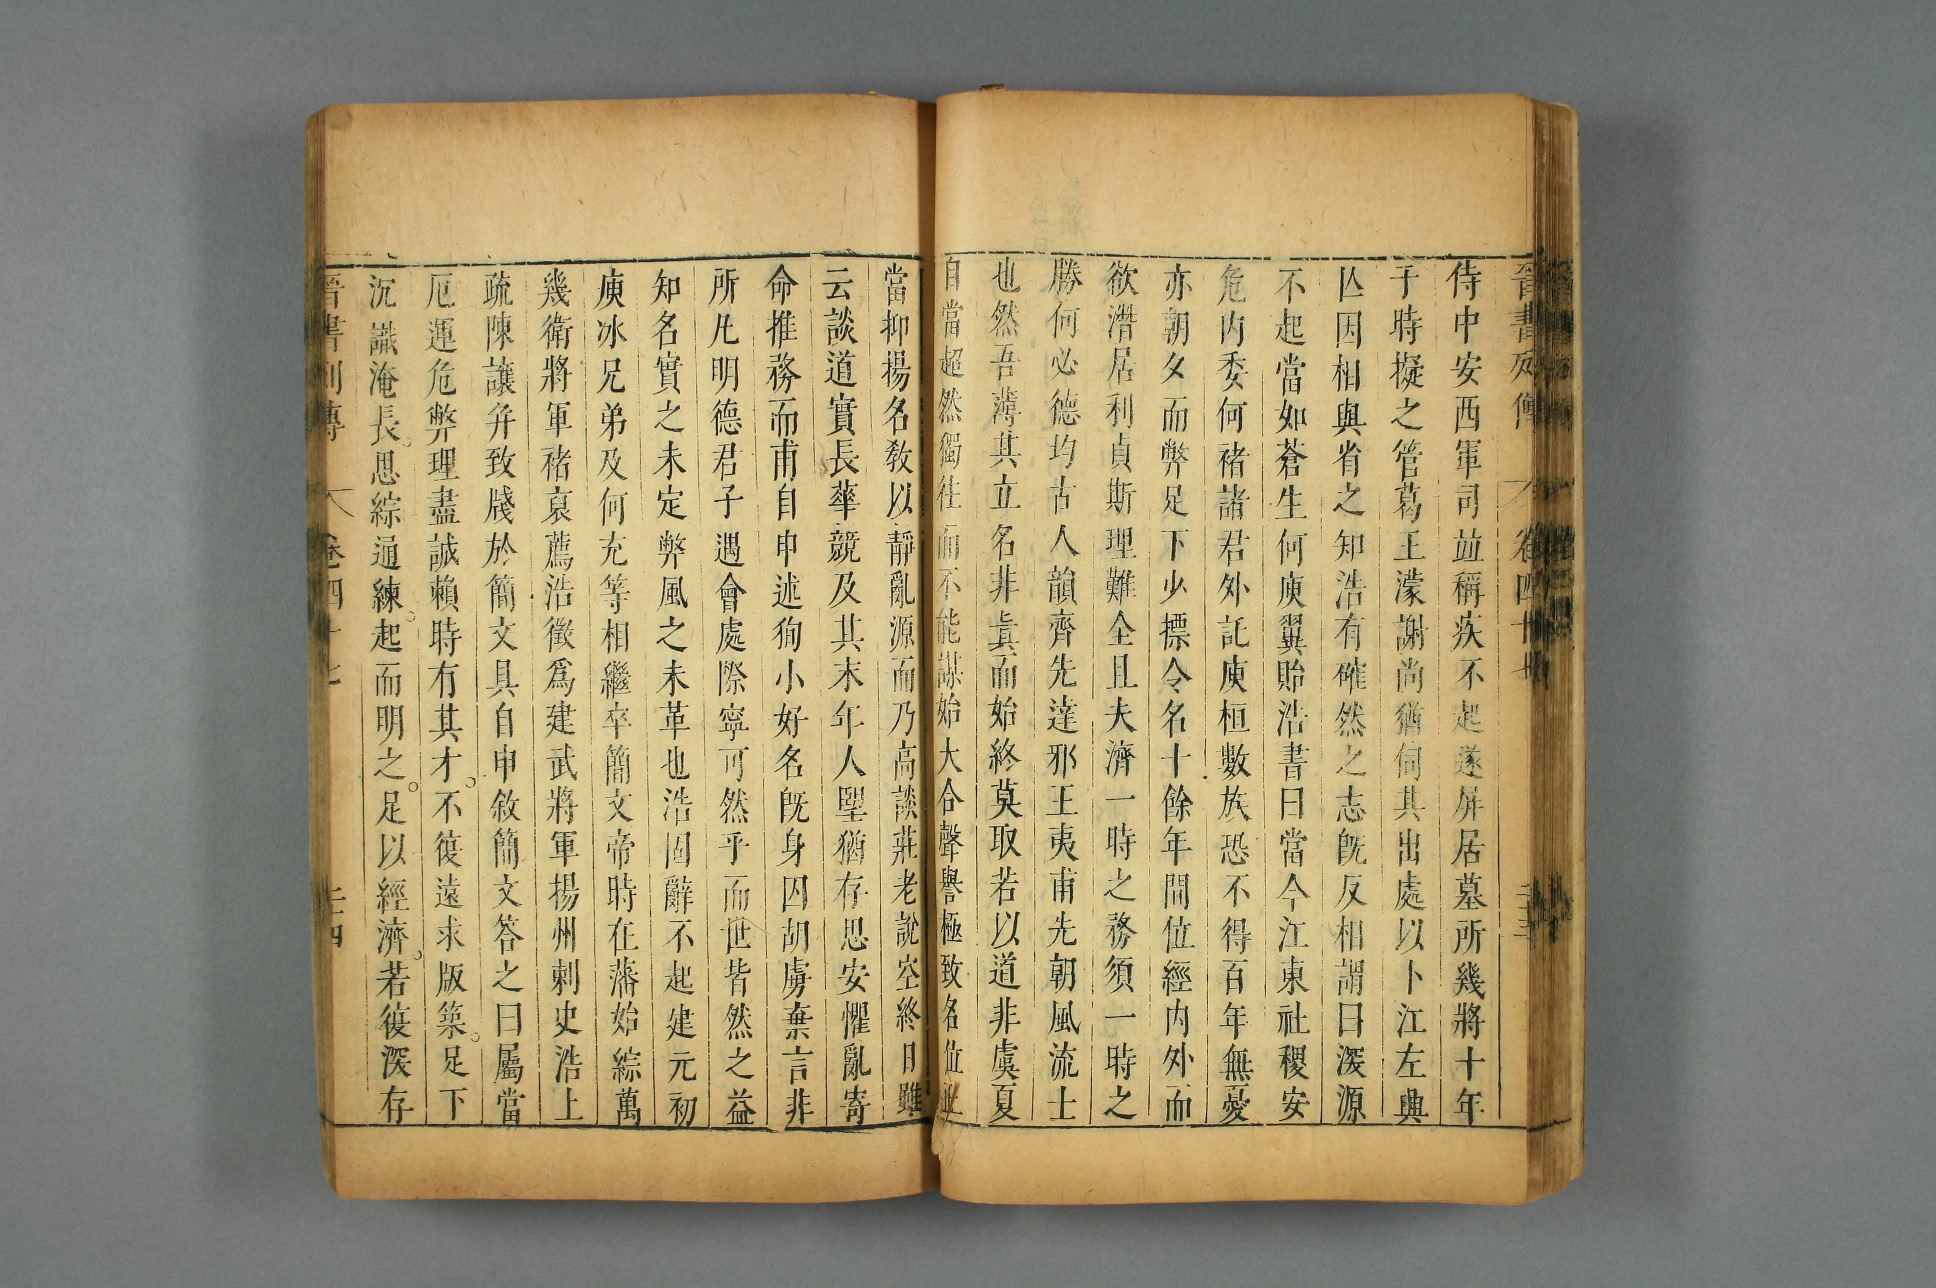 晉書列傳 卷四十七 二十三
侍中安西軍司並稱疾不起遂屏居墓所幾將十年
于時擬之管葛王濛謝尚猶伺其出處以卜江左興
亾因相與省之知浩有確然之志旣反相謂曰深源
不起當如蒼生何庾翼貽浩書曰當今江東社稷安
危內委何褚諸君外託庾桓數族恐不得百年無憂
亦朝夕而弊足下少摽令名十餘年間位經內外而
欲潛居利貞斯理難全且夫濟一時之務須一時之
勝何必德均古人韻齊先達邪王夷甫先朝風流士
也然吾薄其立名非眞而始終莫取若以道非虞夏
自當超然獨往而不能謀始大合聲譽極致名位正
當抑揚名敎以靜亂源而乃高談莊老說空終日雖
云談道實長華競及其末年人朢猶存思安懼亂寄
命推務而甫自申述狥小好名旣身囚胡虜棄言非
所凡明德君子遇會處際寧可然乎而世皆然之益
知名實之未定弊風之未革也浩固辭不起建元初
庾冰兄弟及何充等相繼卒簡文帝時在藩始綜萬
幾衛將軍褚裒薦浩徵爲建武將軍揚州刺史浩上
疏陳讓幷致牋於簡文具自申敘簡文答之曰屬當
厄運危弊理盡誠賴時有其才。不復遠求版築。足下
沉識淹長。思綜通練。起而明之。足以經濟。若復深存
晉書列傳 卷四十七 二十四